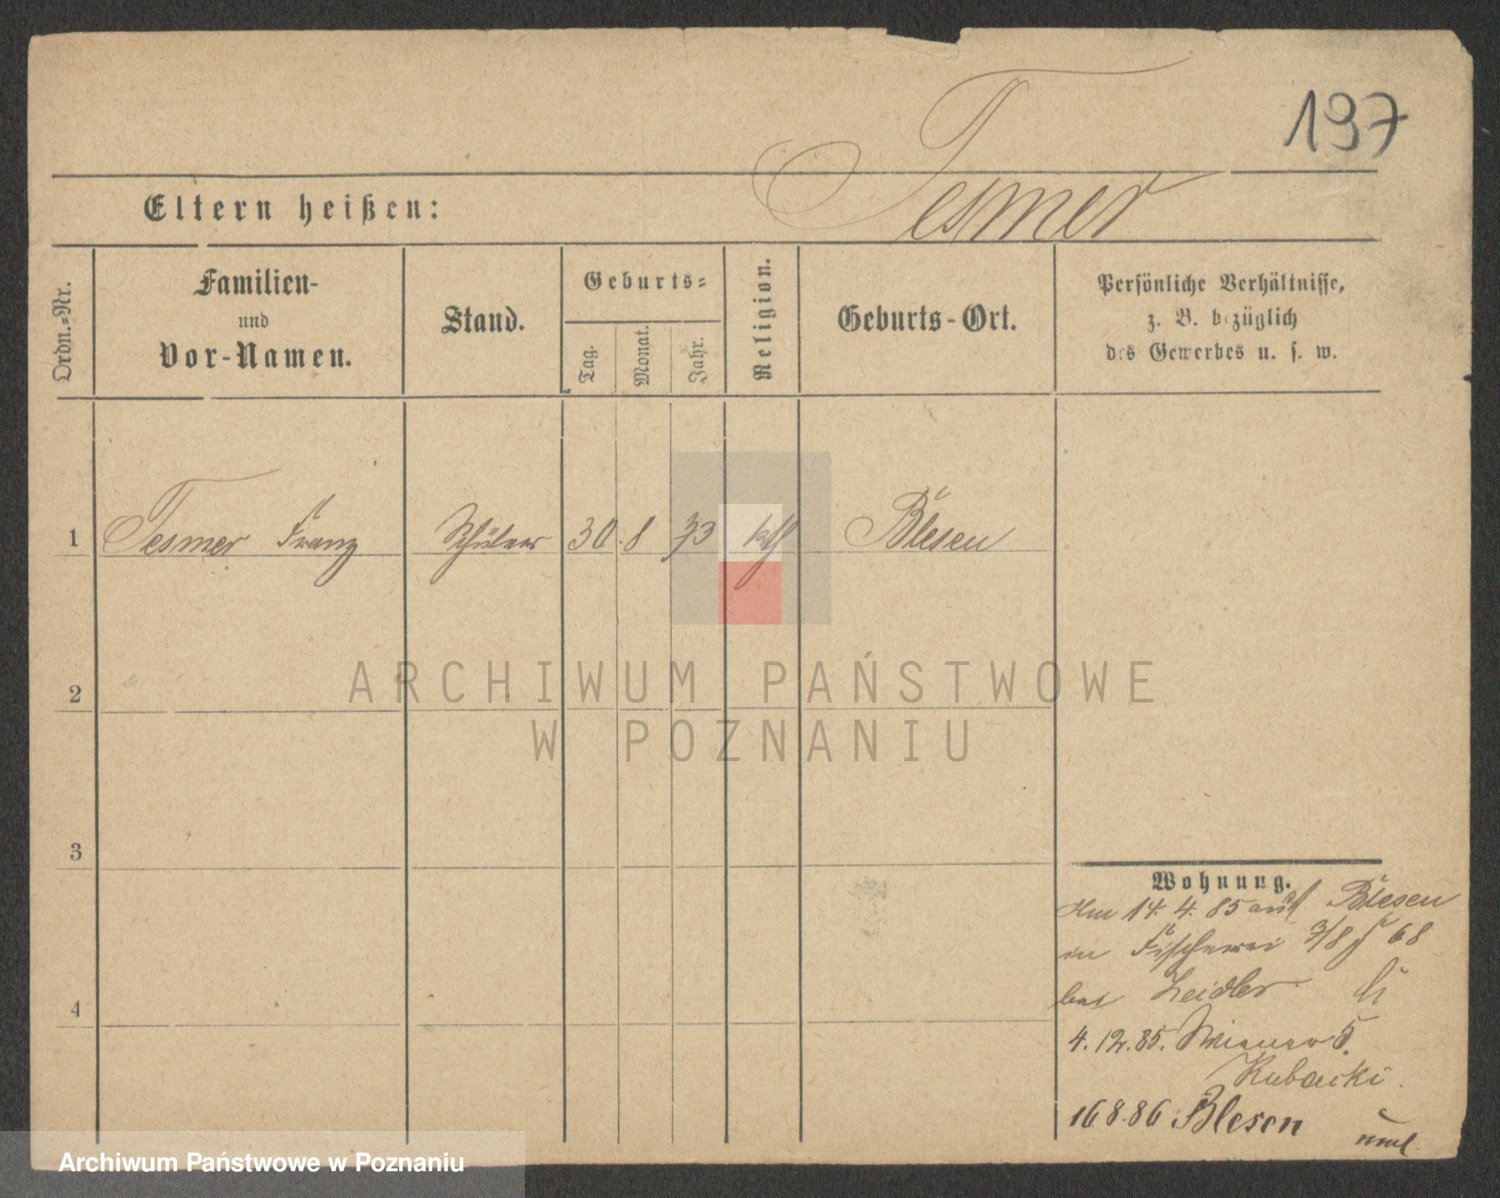 197
Eltern heißen: Tesmer
Ordn.=Nr.
Familien-
und
Vor-Namen.
Stand.
Geburts=
Tag.
Monat.
Jahr.
Religion.
Geburts-Ort.
Persönliche Verhältnisse,
z. B. bezüglich
des Gewerbes u. s. w.
1 Tesmer Franz Schüler 30. 8 73 kth Blesen
2
3
4
ARCHIWUM PAŃSTWOWE
W POZNANIU
Wohnung.
Am 14. 4. 85 aus Blesen
in Fischerei 7/8 68
bei Zeidler
4. 12. 85. Wiener 5.
Kubacki.
16 8. 86 Blesen
Archiwum Państwowe w Poznaniu